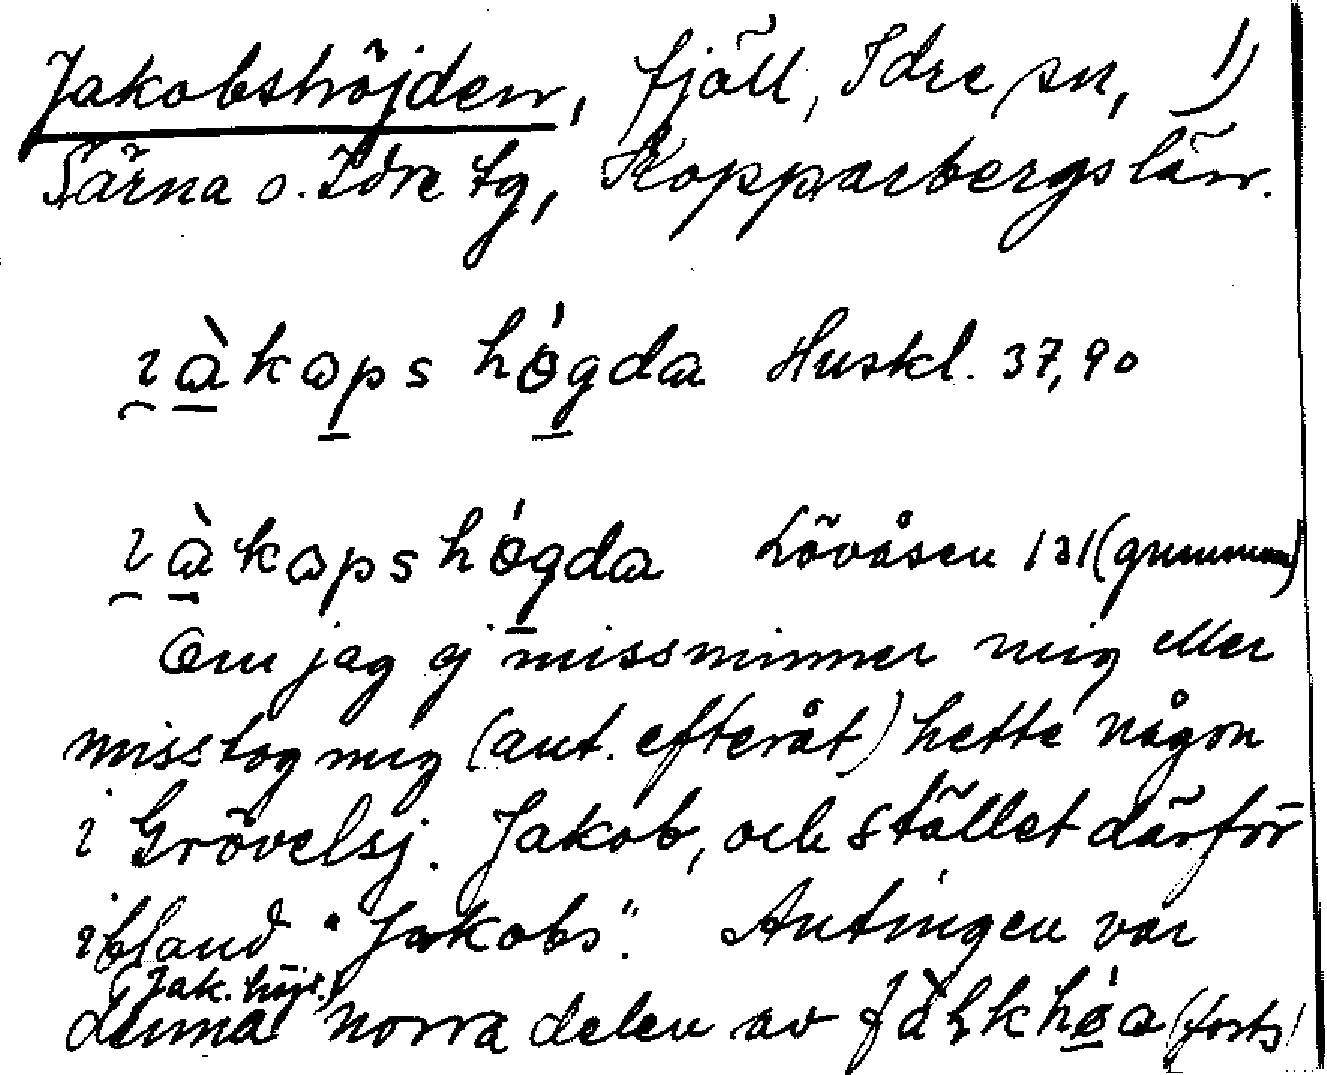 Jakobshöjden, fjäll, Idre sn, 1)
Särna o. Idre tg, Kopparbergs län.
ıàkaps høgda Huskl. 37,90
ıàkaps høgda Lövåsen 131 (gumman)
Om jag ej missminner mig eller
misstog mig (ant. efteråt) hette någon
i Grövelsj. Jakob, och stället därför
ibland "Jakobs". Antingen var
(Jak. höjd.)
denna norra delen av (forts)